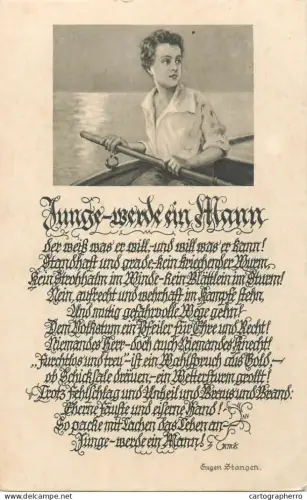 Junge-werde ein Mann
der weiß was er will-und will was er kann!
Standhaft und grade-kein kriechender Wurm,
Kein Strohhalm im Winde-kein Blättlein im Sturm!
Nein, aufrecht und wehrhaft im Kampfe stehn,
Und mutig gefahrvolle Wege gehn!
Dem Volkstum ein Pfeiler für Ehre und Recht!
Niemandes Herr-doch auch Niemandes Knecht!
„Furchtlos und treu"-ist ein Wahlspruch aus Gold-
ob Schicksale dräuen,-ein Wettersturm grollt!
Trotz Fehlschlag und Unheil und Braus und Brand:
Eherne Fäuste und eiserne Hand!
So packe mit Lachen das Leben an-
Junge-werde ein Mann!
Eugen Stangen.
www.delcampe.net
postcardshopping